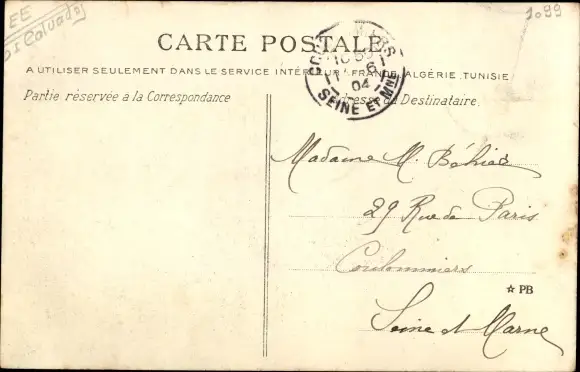 EE
Calvados
1099
CARTE POSTALE
A UTILISER SEULEMENT DANS LE SERVICE INTÉRIEUR (FRANCE, ALGÉRIE, TUNISIE)
Partie réservée à la Correspondance
Adresse du Destinataire.
11 -6
04
SEINE ET MNE
Madame M.
29 Rue de Paris
Coulommiers
☆ PB
Seine et Marne